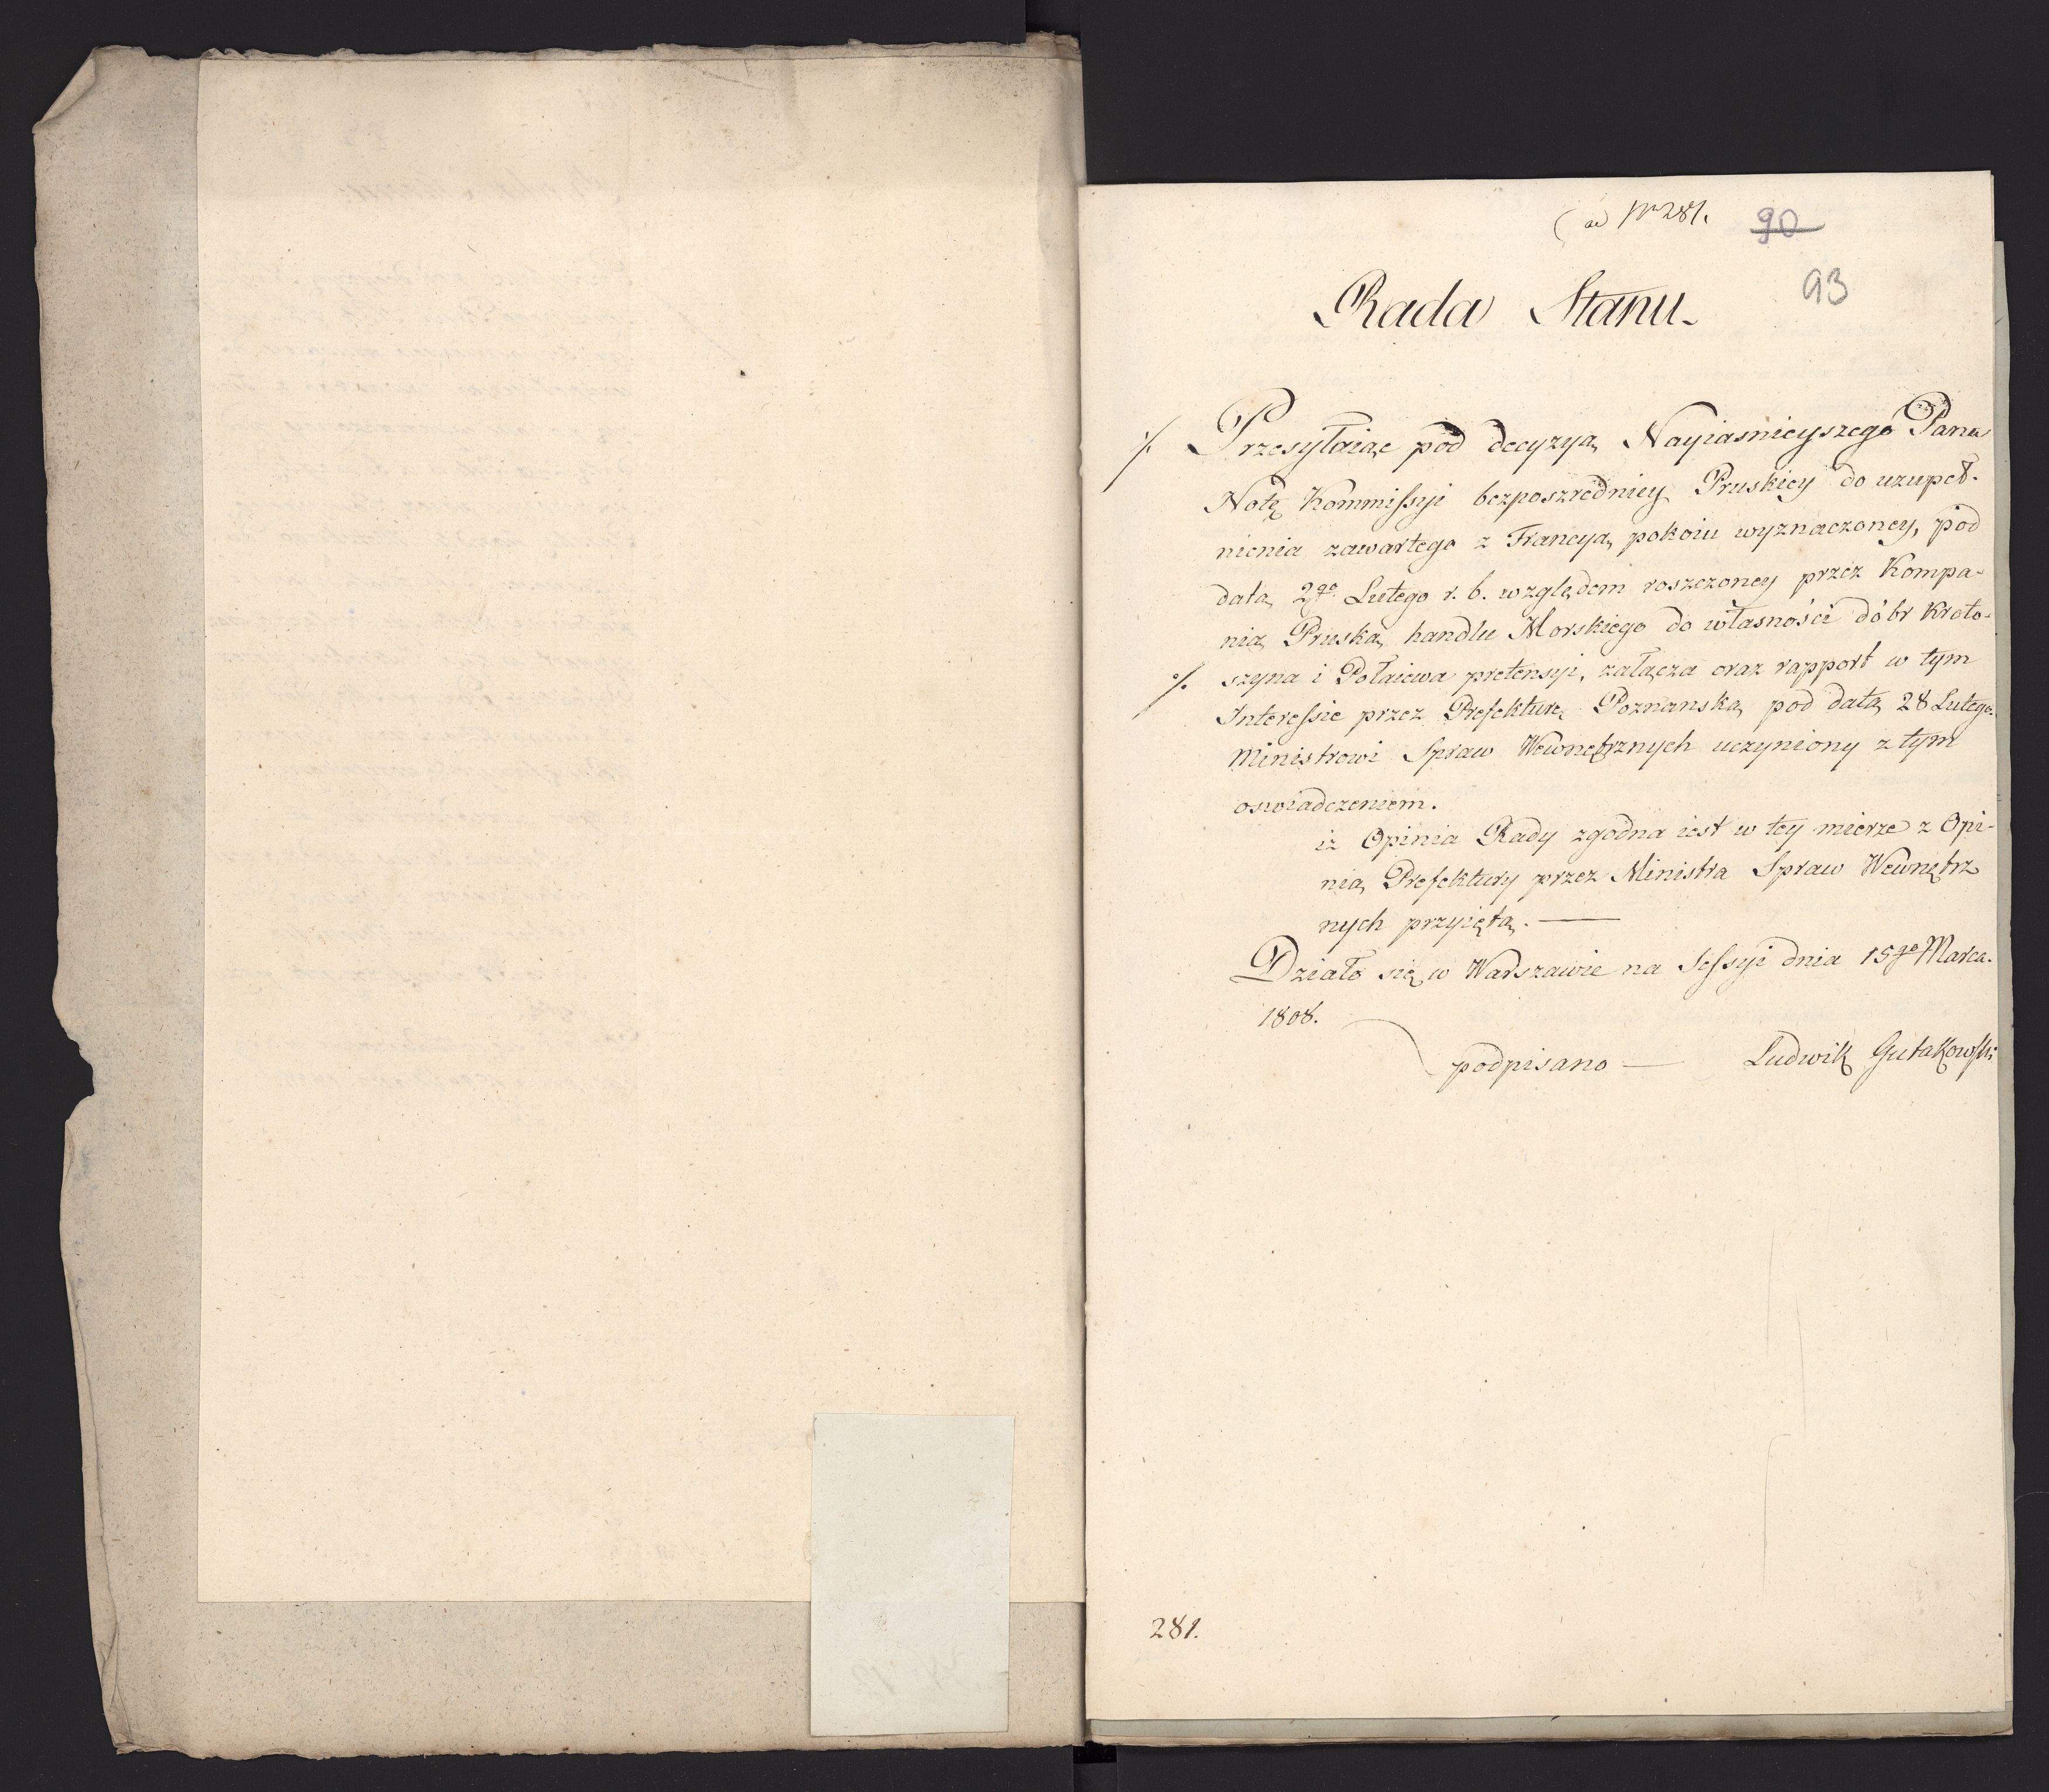 (ad Nr 281.
90
93
Rada Stanu.
·/. Przesyłaiąc pod decyzyą Nayiasnieyszego Pana
Notę Kommissyi bezposzredniey Pruskiey do uzupeł-
nienia zawartego z Francyą pokoiu wyznaczoney, pod
datą 2go Lutego r. b. względem roszczoney przez Kompa-
nią Pruską handlu Morskiego do własności dóbr Kroto-
·/. szyna i Połaiewa pretensyi, załącza oraz rapport w tym
Interessie przez Prefekturę Poznanską pod datą 28 Lutego
Ministrowi Spraw Wewnętrznych uczyniony z tym
oswiadczeniem.
iż Opinia Rady zgodna iest w tey mierze z Opi-
nią Prefektury przez Ministra Spraw Wewnętrz
nych przyiętą. —
Działo się w Warszawie na Sessyi dnia 15go Marca.
1808.
podpisano — Ludwik Gutakowski
281.